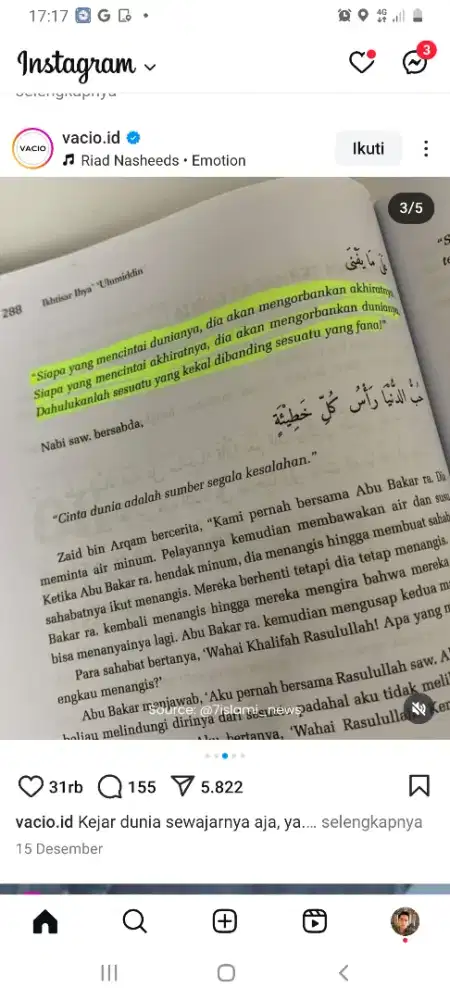 17:17
4G
Instagram
3
selengkapnya
vacio.id
VACIO
Riad Nasheeds • Emotion
Ikuti
3/5
288
Ikhtisar Ihya' 'Ulumiddin
مَا يَفْنَى
"Siapa yang mencintai dunianya, dia akan mengorbankan akhiratnya.
Siapa yang mencintai akhiratnya, dia akan mengorbankan dunianya.
Dahulukanlah sesuatu yang kekal dibanding sesuatu yang fana!"
Nabi saw. bersabda,
الدُّنْيَا رَأْسُ كُلِّ خَطِيْئَةٍ
"Cinta dunia adalah sumber segala kesalahan."
Zaid bin Arqam bercerita, "Kami pernah bersama Abu Bakar ra. Dia
meminta air minum. Pelayannya kemudian membawakan air dan
Ketika Abu Bakar ra. hendak minum, dia menangis hingga membuat
sahabatnya ikut menangis. Mereka berhenti tetapi dia tetap menangis.
Bakar ra. kembali menangis hingga mereka mengira bahwa mereka
bisa menanyainya lagi. Abu Bakar ra. kemudian mengusap kedua
Para sahabat bertanya, 'Wahai Khalifah Rasulullah! Apa yang
engkau menangis?'
Abu Bakar menjawab, 'Aku pernah bersama Rasulullah saw.
beliau melindungi dirinya dari padahal aku tidak
bertanya, 'Wahai Rasulullah
Source: @7islami_news
31rb
155
5.822
vacio.id Kejar dunia sewajarnya aja, ya.... selengkapnya
15 Desember